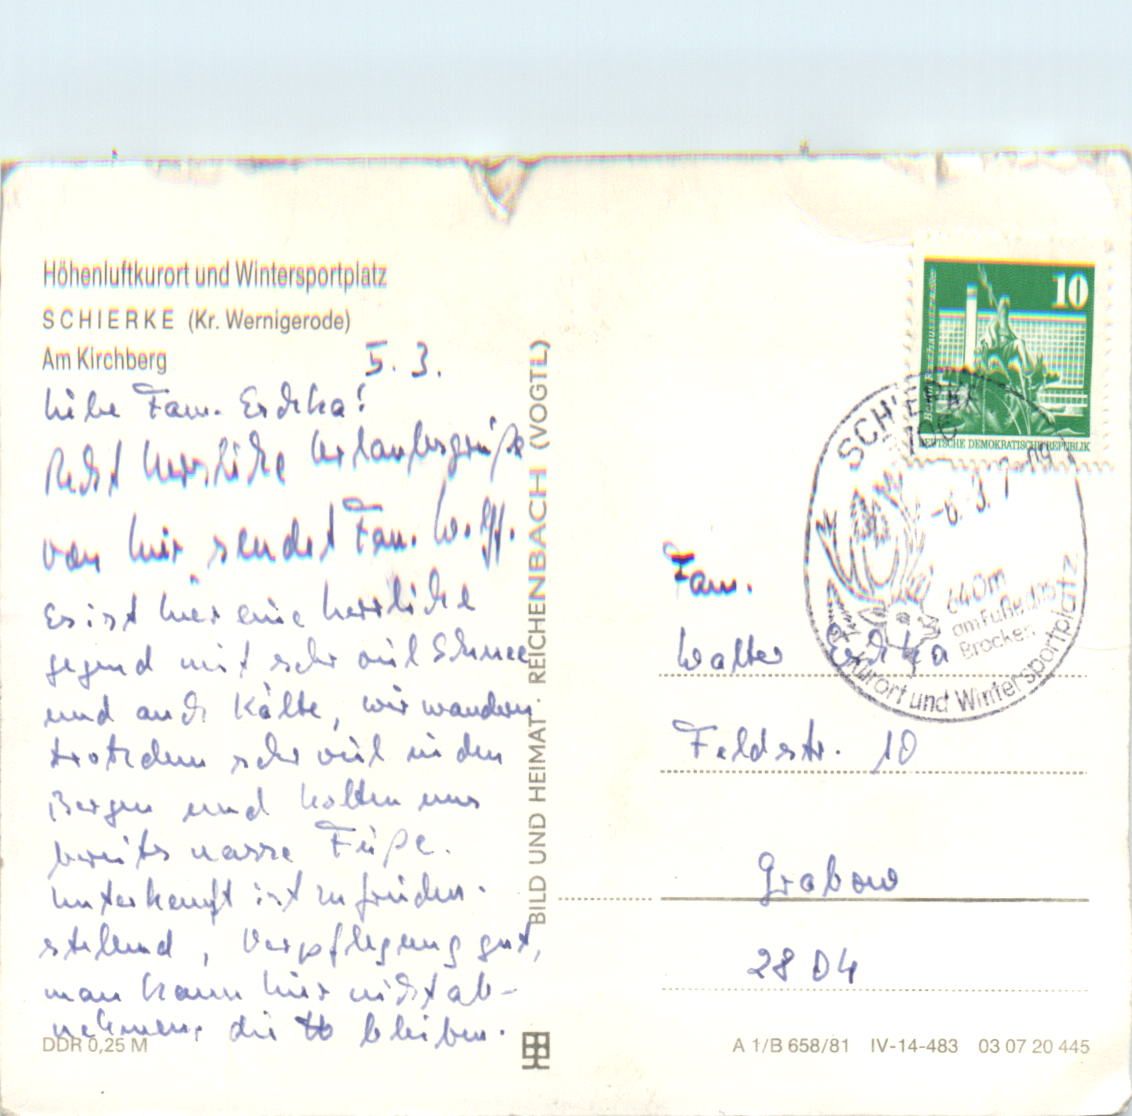 Höhenluftkurort und Wintersportplatz
SCHIERKE (Kr. Wernigerode)
Am Kirchberg
5. 3.
Liebe Fam.
Recht herzliche Urlaubsgrüße
von hier sendet Fam. Wolff.
Es ist hier eine herrliche
gegend mit sehr viel Schnee
und auch Kälte, wir wandern
trotzdem sehr viel in den
Bergen und holten uns
bereits nasse Füße.
Unterkunft ist zufrieden-
stellend, Verpflegung gut,
man kann hier nicht ab-
nehmen, die bleiben.
DDR 0,25 M
BILD UND HEIMAT · REICHENBACH (VOGTL)
10
DEUTSCHE DEMOKRATISCHE REPUBLIK
SCHIERKE
-6. 3.
640m
am Fuße des
Brocken
Kurort und Wintersportplatz
Fam.
Walter
Feldstr. 10
Grabow
2804
A 1/B 658/81 IV-14-483 03 07 20 445